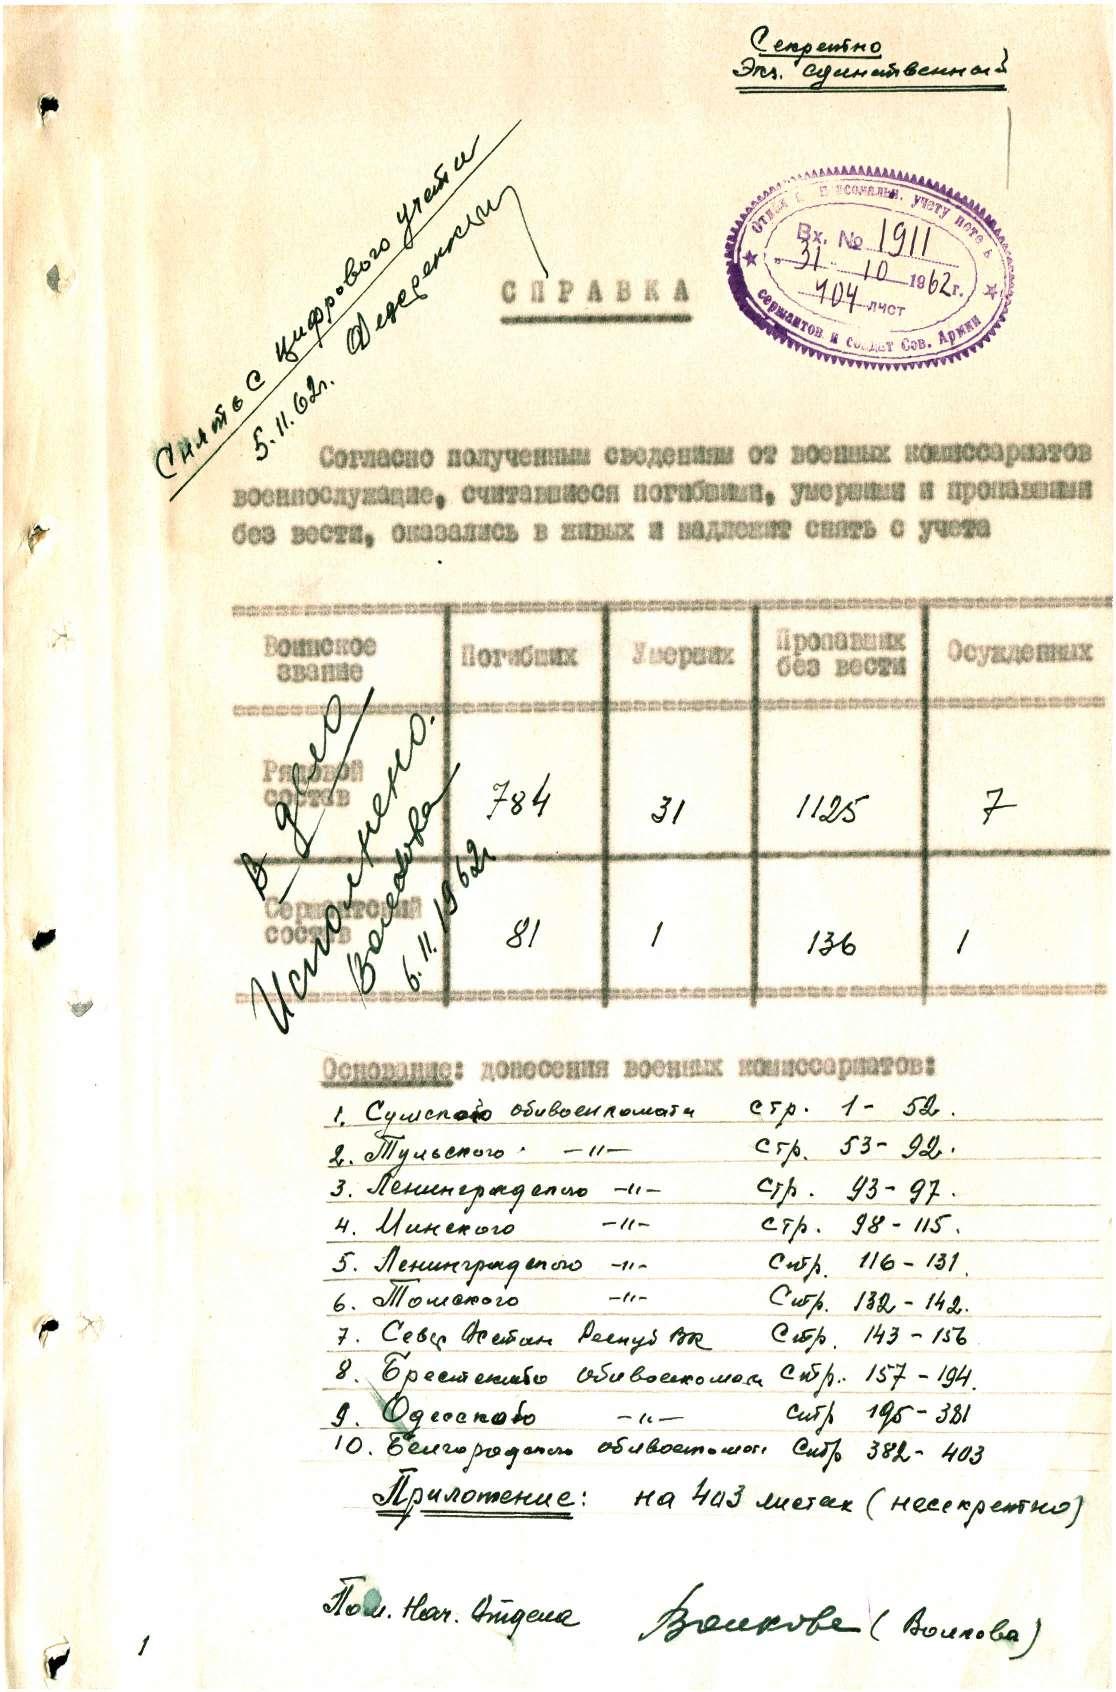 Секретно
Экз. единственный
Отдел по персональн. учету потерь
Вх. № 1911
„31" 10 1962 г.
404 лист
сержантов и солдат Сов. Армии
Снять с цифрового учета
5.11.62г.
СПРАВКА
Согласно полученным сведениям от военных комиссариатов
военнослужащие, считавшиеся погибшими, умершими и пропавшими
без вести, оказались в живых и надлежит снять с учета
Воинское звание | Погибших | Умерших | Пропавших без вести | Осужденных
Рядовой состав | 784 | 31 | 1125 | 7
Сержантский состав | 81 | 1 | 136 | 1
В дело
Исполнено.
Волкова
6.11.1962г
Основание: донесения военных комиссариатов:
1. Сумского облвоенкомата стр. 1 - 52.
2. Тульского -"- стр. 53 - 92.
3. Ленинградского -"- стр. 93 - 97.
4. Минского -"- стр. 98 - 115.
5. Ленинградского -"- Стр. 116 - 131.
6. Томского -"- Стр. 132 - 142.
7. Север Осетин Респуб ВК Стр. 143 - 156
8. Брестского облвоенкомат Стр. 157 - 194.
9. Одесского -"- Стр 195 - 381
10. Белгородского облвоенкомат Стр 382 - 403
Приложение: на 403 листах (несекретно)
Пом. Нач. Отдела Волкова (Волкова)
1